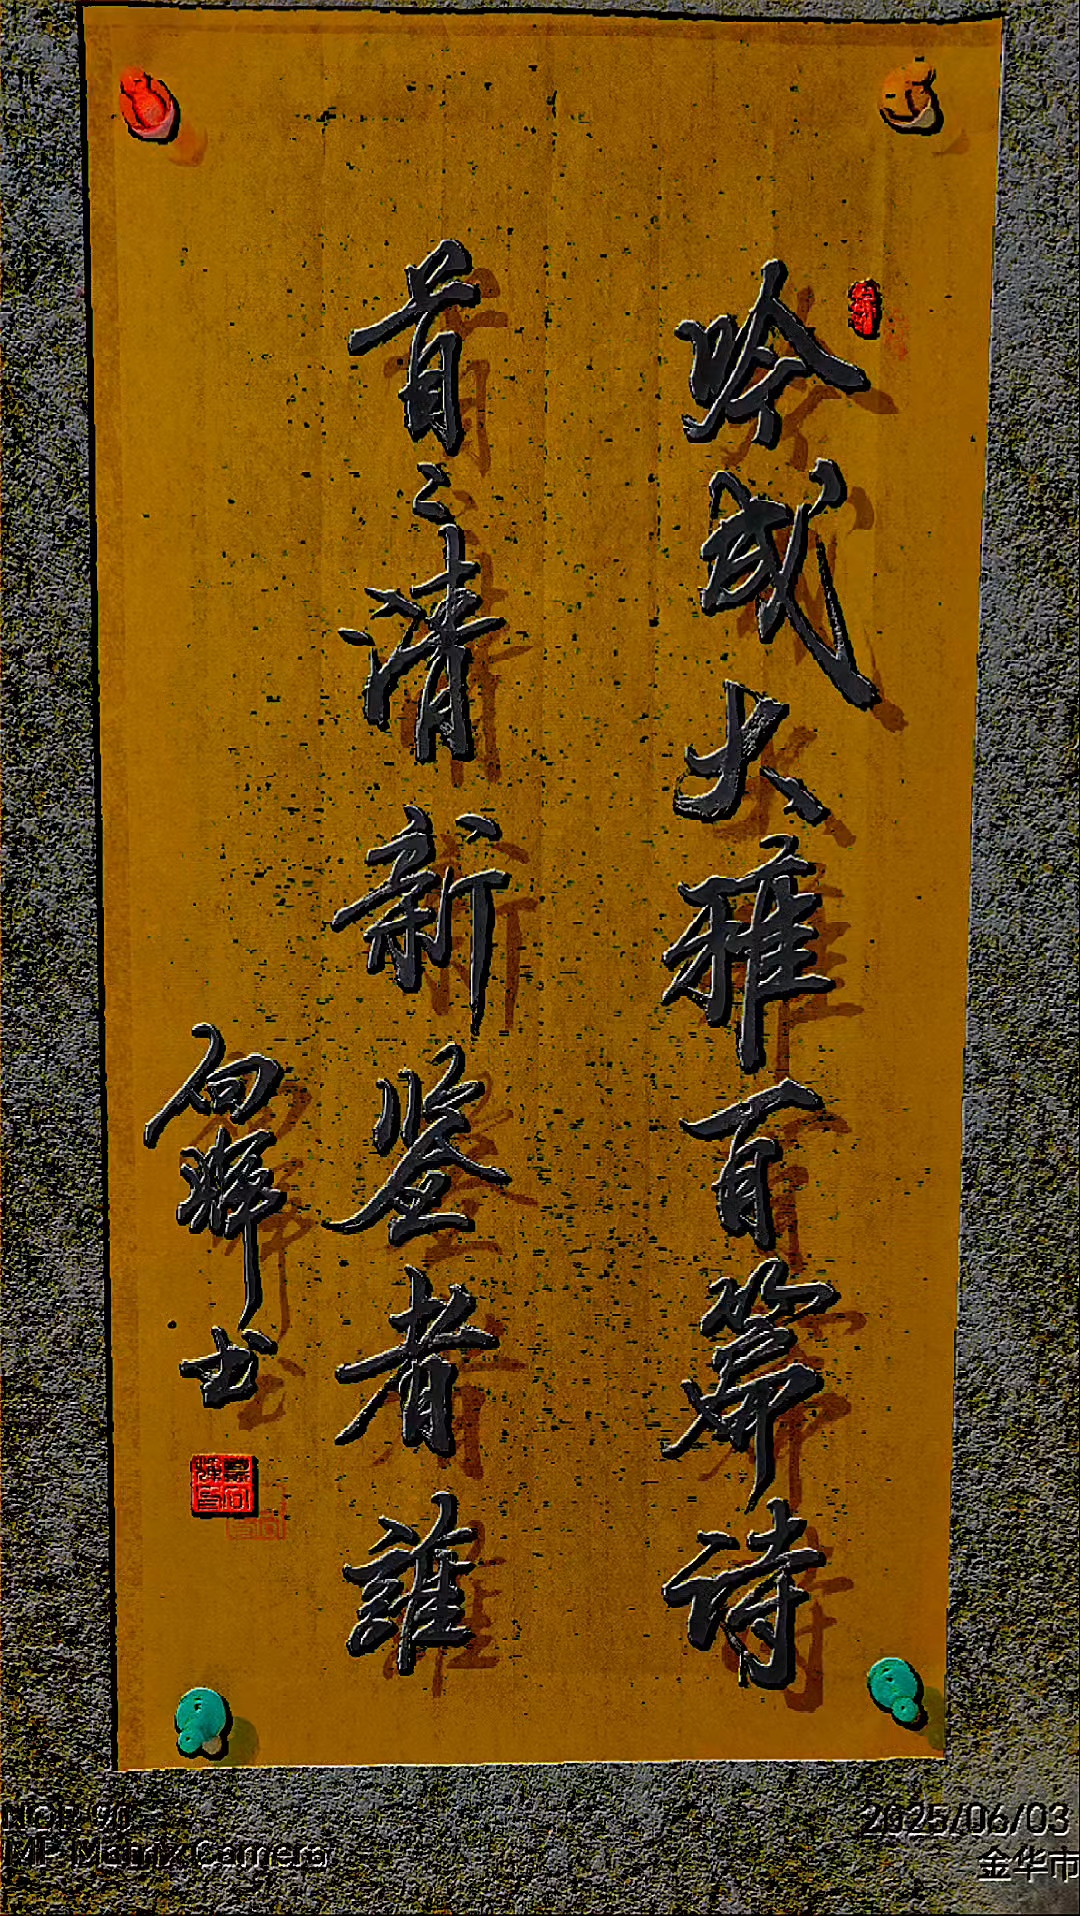 吟成大雅百篇诗
首々清新鉴者誰
向辉书
2025/06/03
MP Matrix Camera
金华市